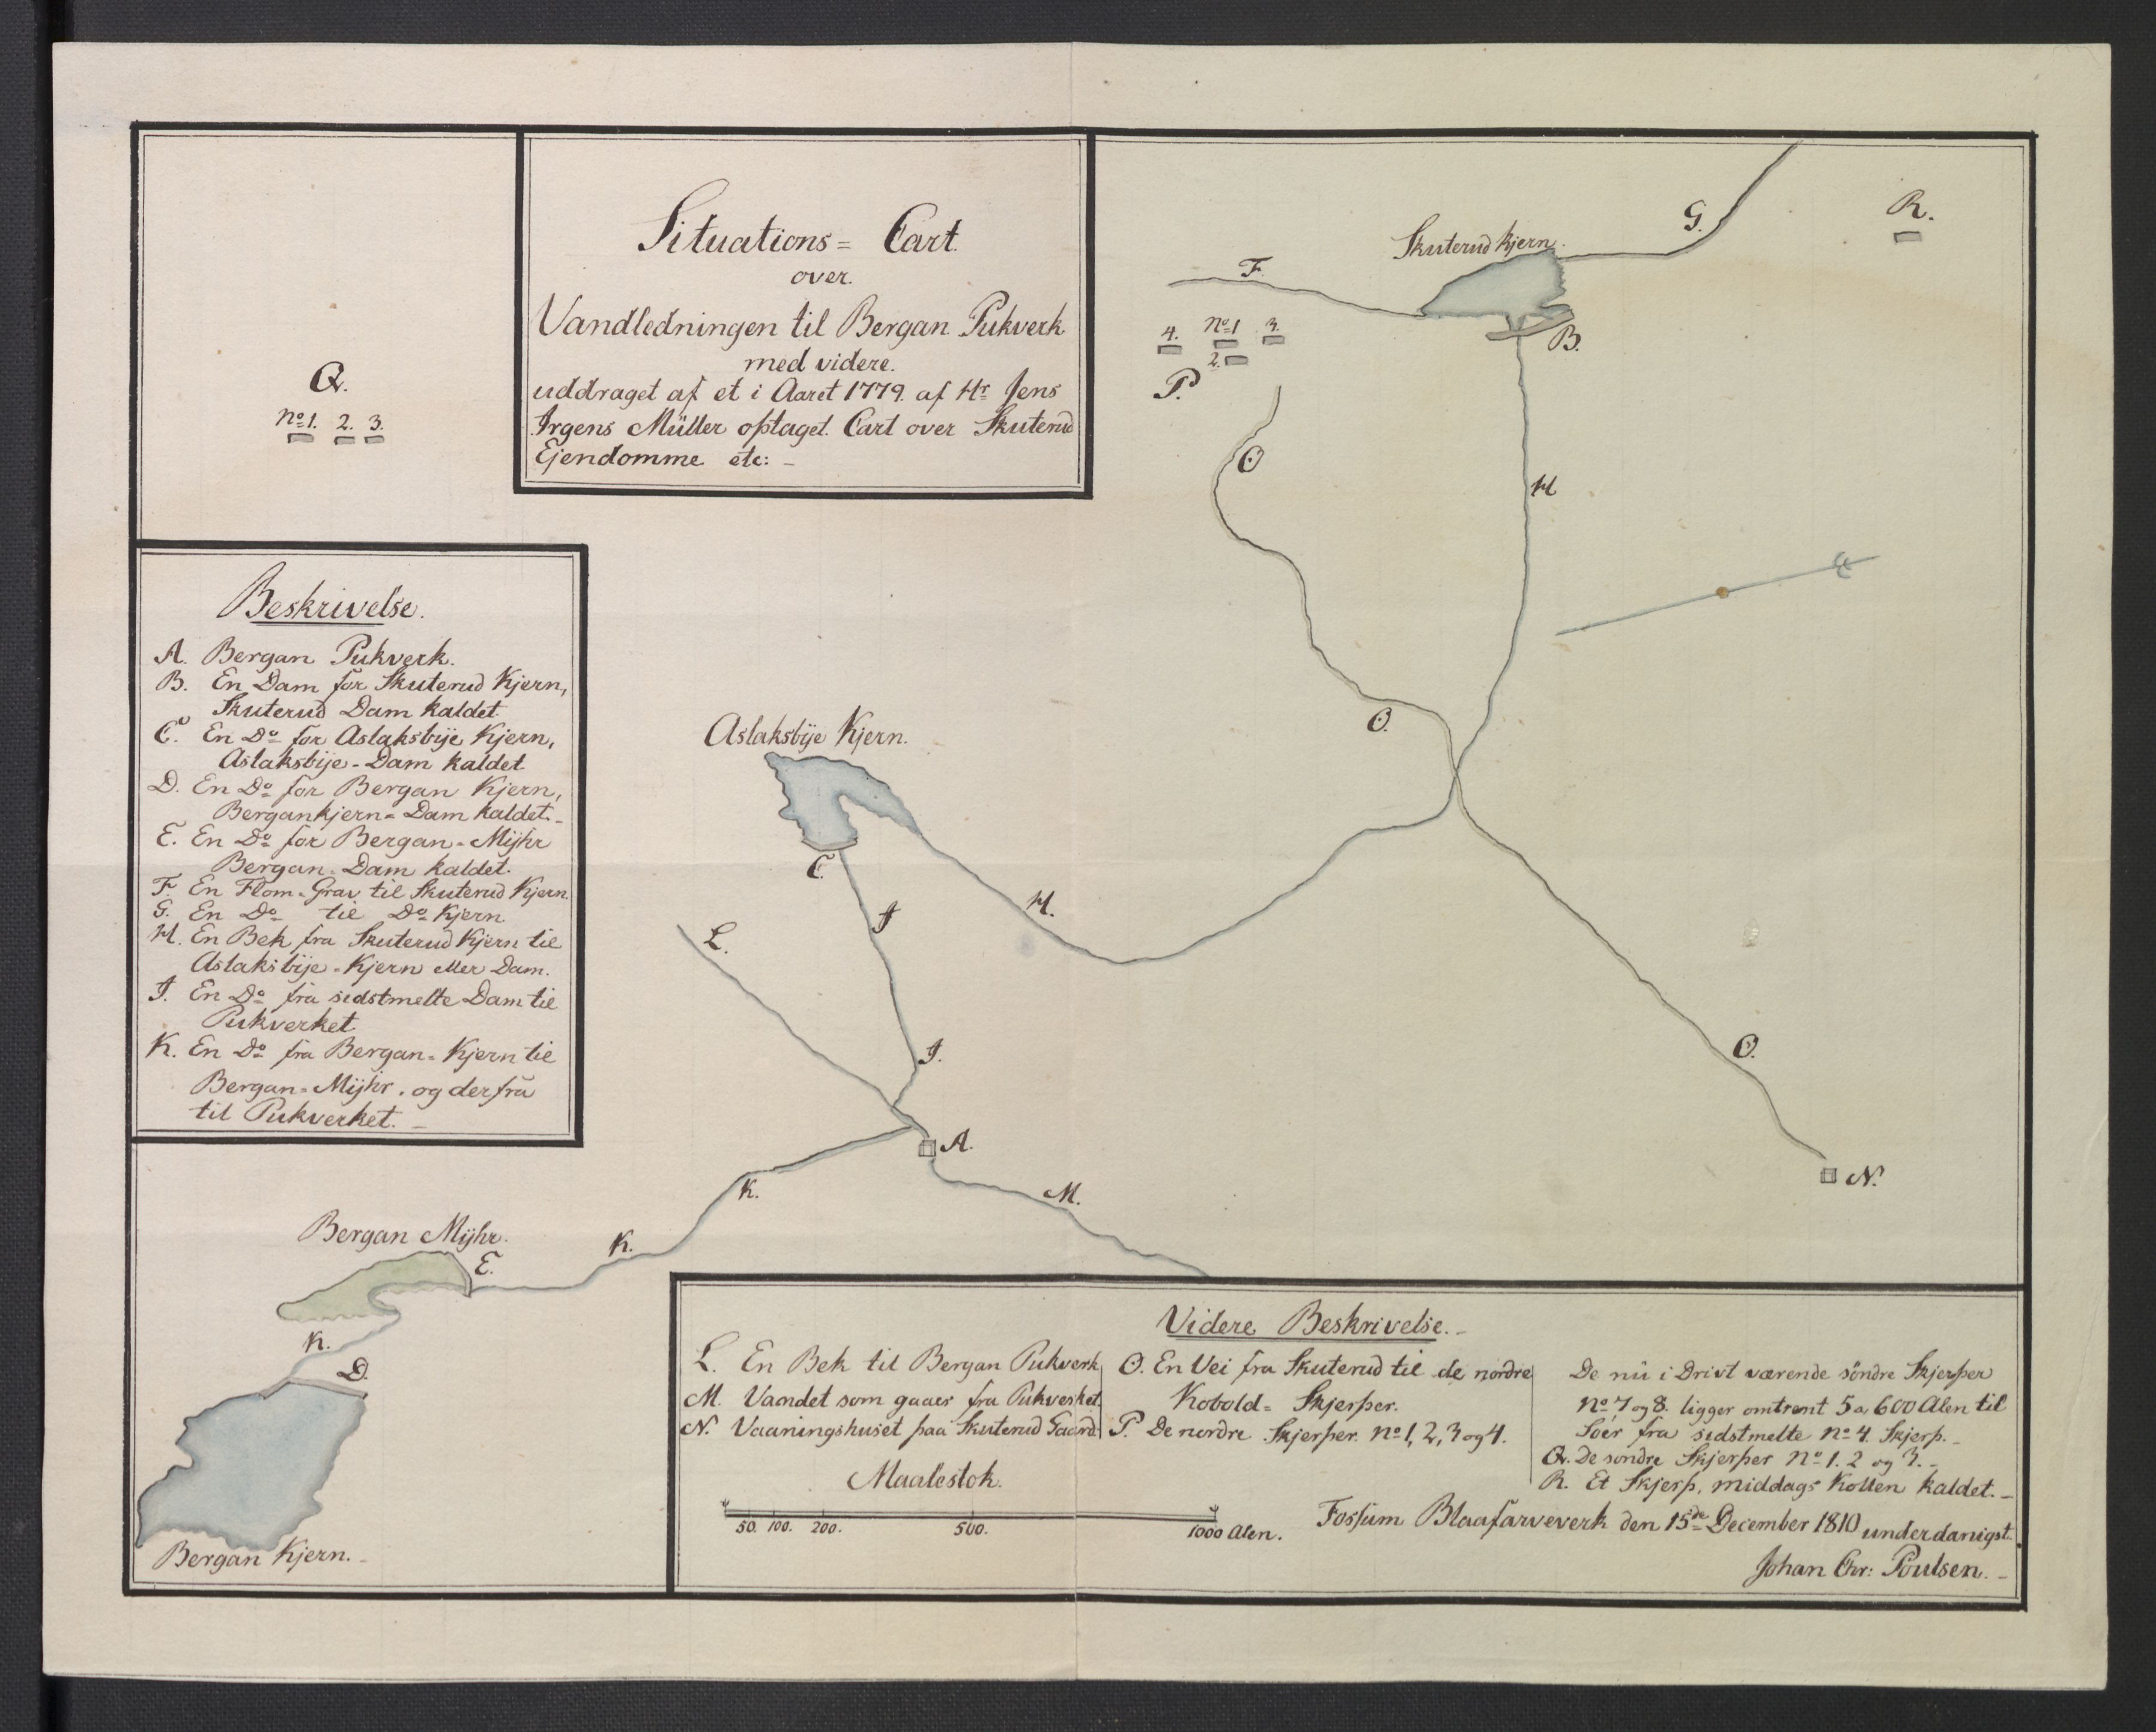 Situations= Cart.
over.
Vandledningen til Bergan Pukverk.
med videre.
uddraget af et i Aaret 1779. af Hr. Jens
Irgens Müller optaget. Cart over Skuterud
Ejendomme etc: -
Q.
No 1. 2. 3.
Skuterud kjern.
G.
R.
F.
4. No 1 3.
2.
P.
B.
O
H
O.
Aslaksbije Kjern.
C.
H.
J
L.
J.
O.
A.
N.
K.
M.
K.
Bergan Mijhr.
E.
K.
D.
Bergan Kjern. -
Beskrivelse.
A. Bergan Pukverk.
B. En Dam for Skuterud Kjern,
Skuterud Dam kaldet.
C. En Do for Aslaksbije Kjern,
Aslaksbije - Dam kaldet
D. En Do for Bergan Kjern,
Bergankjern = Dam kaldet. -
E. En Do for Bergan = Mijhr
Bergan = Dam kaldet.
F. En Flom = Grav til Skuterud Kjern.
G. En Do til Do Kjern.
H. En Bek fra Skuterud Kjern til
Aslaksbije = Kjern eller Dam.
J. En Do fra sidstmelte Dam til
Pukverket
K. En Do fra Bergan = Kjern til
Bergan = Mijhr. og derfra
til Pukverket. -
Videre Beskrivelse. -
L. En Bek til Bergan Pukverk
M. Vandet som gaaer fra Pukverket.
N. Vaaningshuset paa Skuterud Gaard.
O. En Vei fra Skuterud til de nordre
Kobold = Skjerper.
P. De nordre Skjerper. No 1, 2, 3 og 4.
De nu i Drivt værende söndre Skjerper
No 7 og 8. ligger omtrent 5 a 600 Alen til
Söer fra sidstmelte No 4. Skjerp. -
Q. De söndre Skjerper No 1. 2 og 3. -
R. Et Skjerp, middags Kollen kaldet. -
Maalestok.
50. 100. 200. 500. 1000 Alen.
Fossum Blaafarveverk den 15de December 1810 underdanigst.
Johan Chr: Poulsen. -